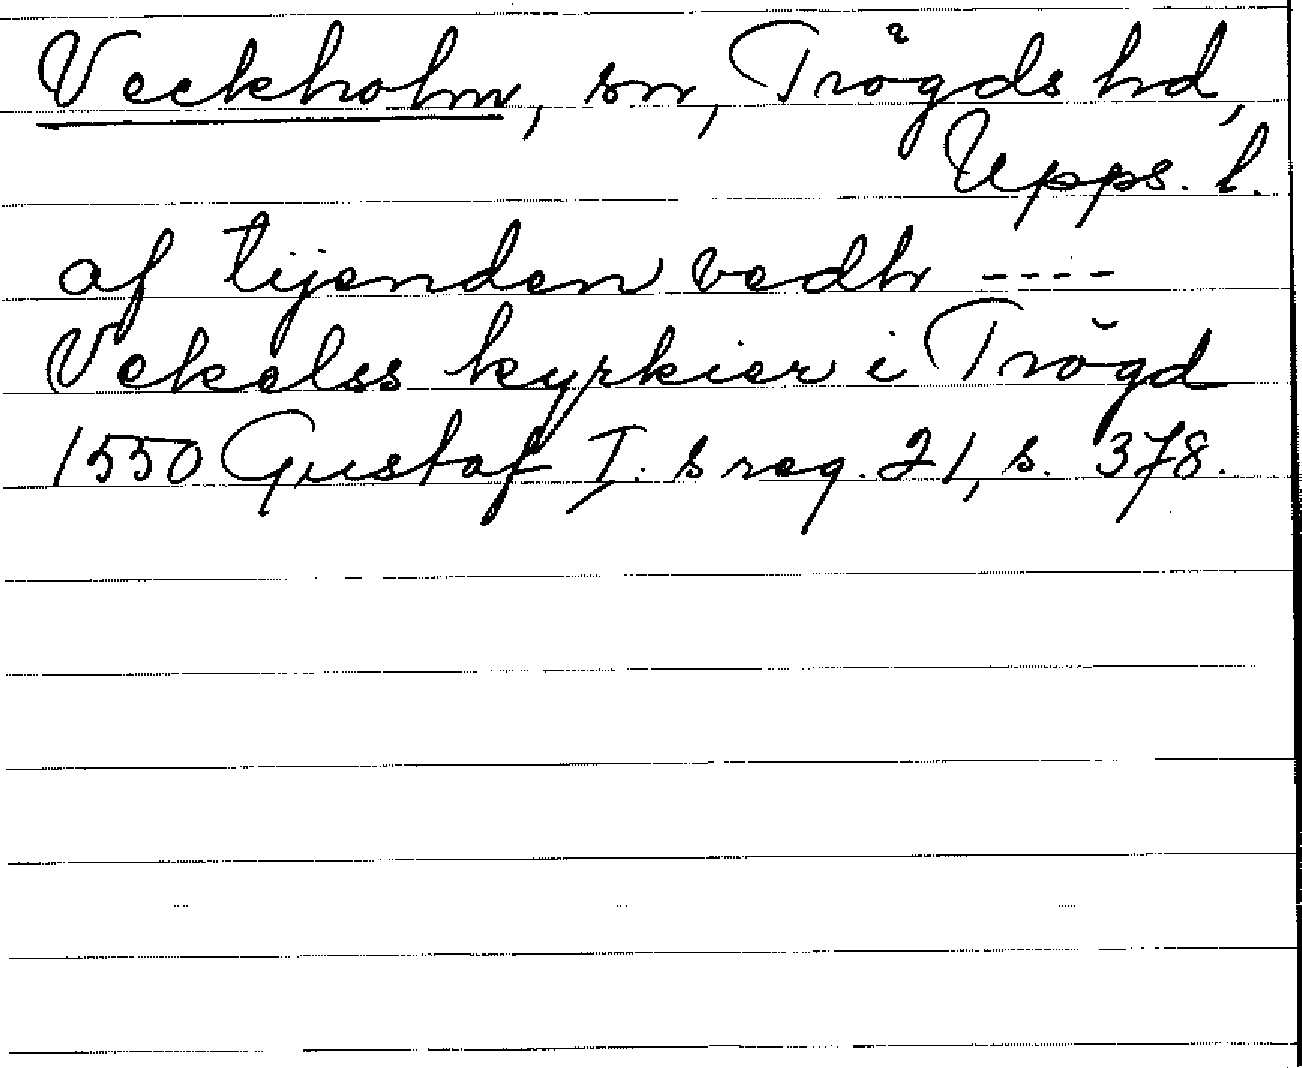 Veckholm, sn, Trögds hd,
Upps. l.
af tijenden vedh ----
Vekelss kyrkier i Trögd
1550 Gustaf I:s reg. 21, s. 378.